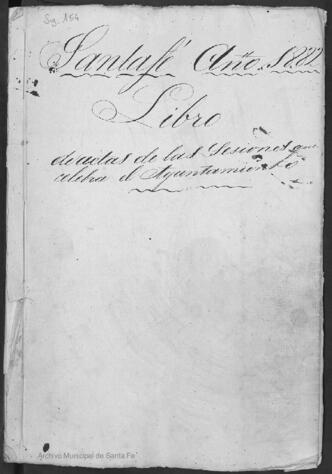 Sg. 154
Santafé Año 1882
Libro
de actas de las Sesiones que
celebra el Ayuntamiento
Archivo Municipal de Santa Fe